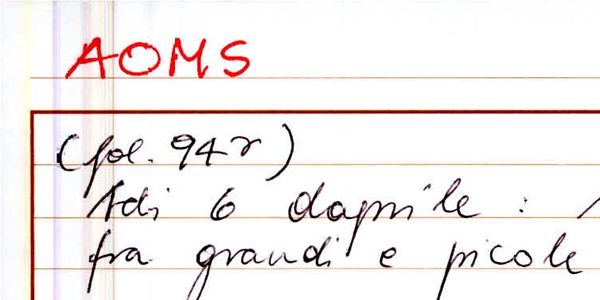 AOMS
(fol. 94r)
Adi 6 daprile :
fra grandi e picole